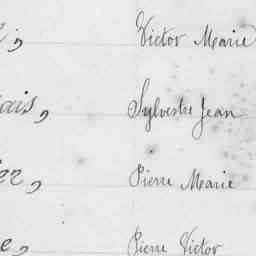 Victor Marie
Sylvestre Jean
Pierre Marie
Pierre Victor